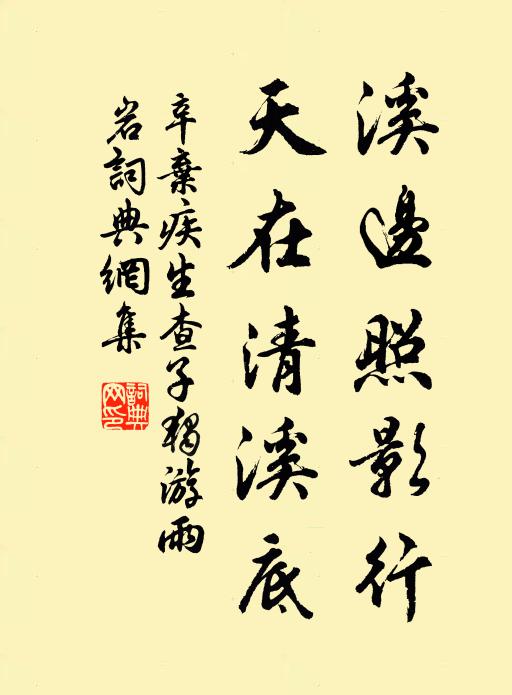 溪邊照影行
天在清溪底
辛棄疾生查子獨游雨
岩詞典網集
詞典網印